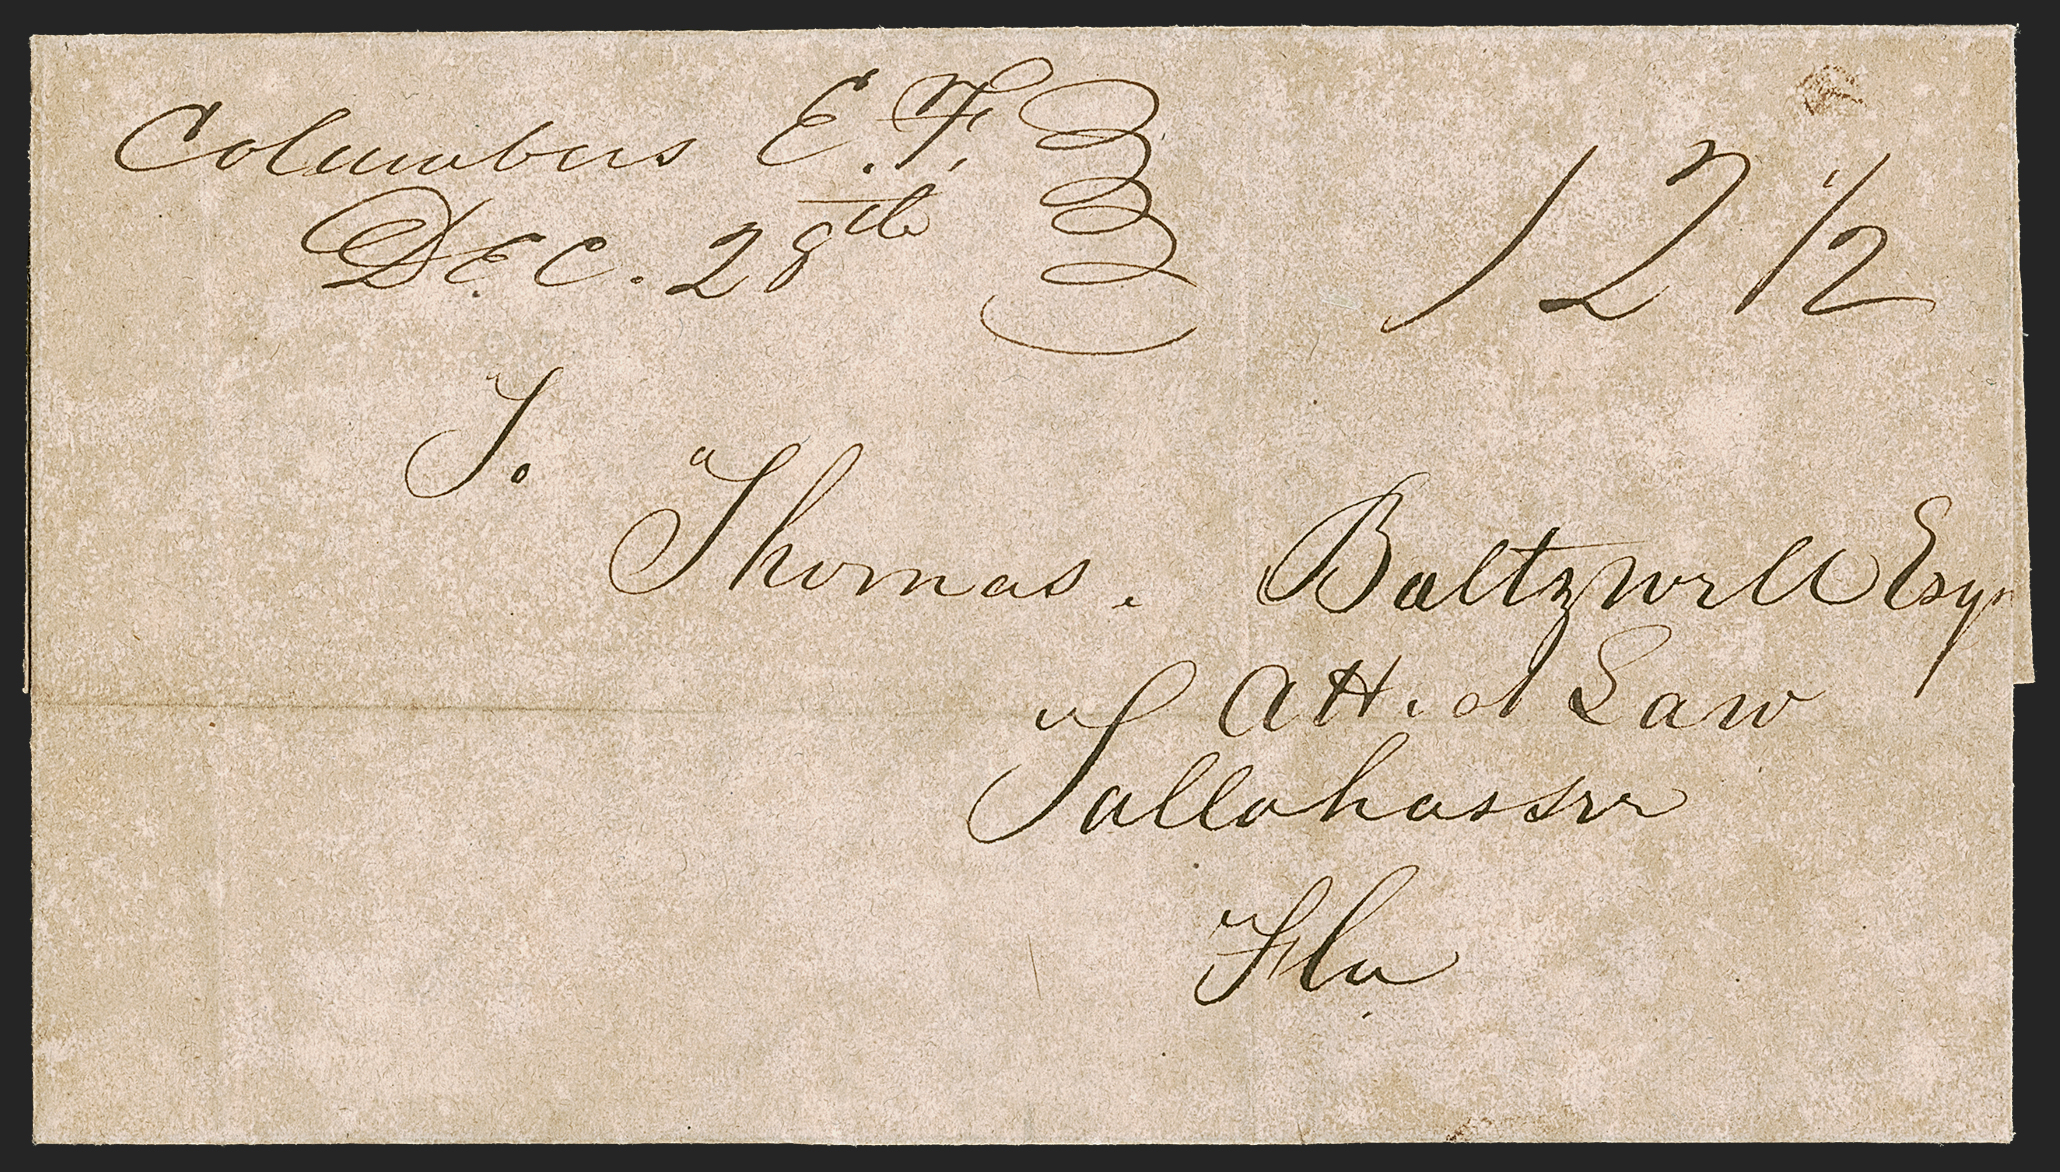 Columbus E.F.
Dec. 28th
12 1/2
T.
Thomas. Baltzwell Esqr
Att. at Law
Tallahassee
Fla